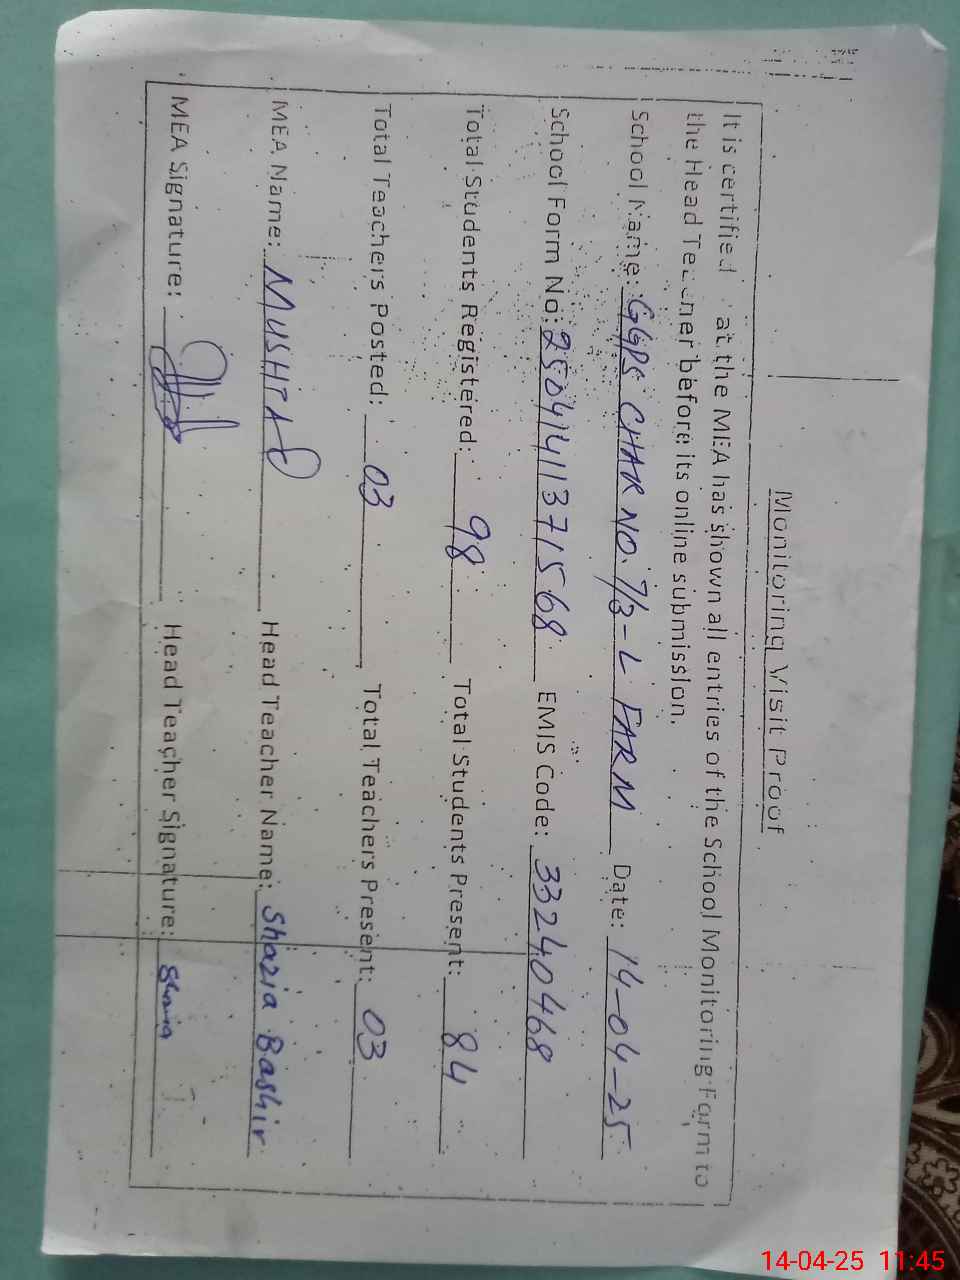 Monitoring Visit Proof
It is certified at the MEA has shown all entries of the School Monitoring Form to
the Head Teacher before its online submission.
School Name: GGPS CHAK NO. 7/3-L FARM Date: 14-04-25
School Form No: 25041411371568 EMIS Code: 33240468
Total Students Registered: 98 Total Students Present: 84
Total Teachers Posted: 03 Total Teachers Present: 03
MEA Name: MUSHTAQ Head Teacher Name: Shazia Bashir
MEA Signature: Head Teacher Signature: Shazia
14-04-25 11:45